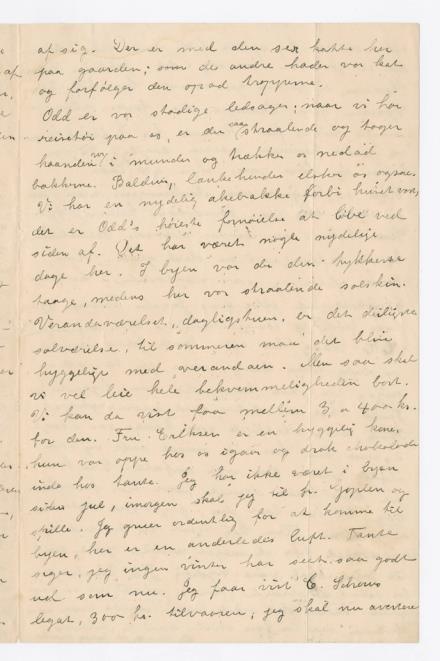 af sig. Der er med den sex katte her
paa gaarden; som de andre hader vor kat
og forfølger den opad trapperne.
Odd er vor stadige ledsager; naar vi har
reisetøi paa os, er den saa straalende og tager
haanden vor i munden og trækker os nedad
bakkerne. Baldur, lænkehunden elsker os ogsaa.
Vi har en nydelig akebakke forbi huset vort,
det er Odd's høieste fornøielse at løbe ved
siden af. Det har været nogle nydelige
dage her. I byen var da den tykkeste
taage, medens her var straalende solskin.
Verandaværelset, dagligstuen, er det deiligste
solværelse, til sommeren maa det blive
hyggelige med verandaen. Men saa skal
vi vel leie hele bekvemmeligheden bort.
Vi kan da vist faa mellem 3 a 400 kr.
for den. Fru Eriksen er en hyggelig kone,
hun var oppe hos os igaar og drak chokolade
inde hos tante. Jeg har ikke været i byen
siden jul, imorgen skal jeg til hr. og
spille. Jeg gruer ordentlig for at komme til
byen, her er en anderledes luft. Tante
siger, jeg ingen vinter har seet saa godt
ud som nu. Jeg faar vist C. Schous
legat, 300 kr. tilvaaren, jeg skal nu avertere